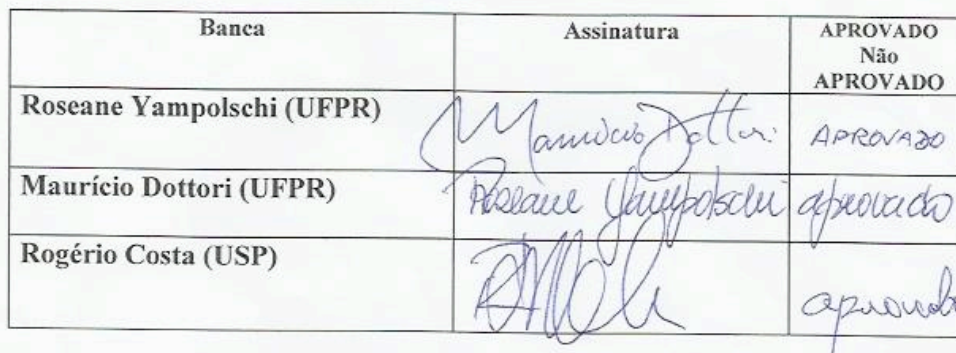 Banca Assinatura APROVADO
Não
APROVADO
Roseane Yampolschi (UFPR) Maurício Dottori APROVADO
Maurício Dottori (UFPR) Roseane Yampolschi aprovado
Rogério Costa (USP) aprovado